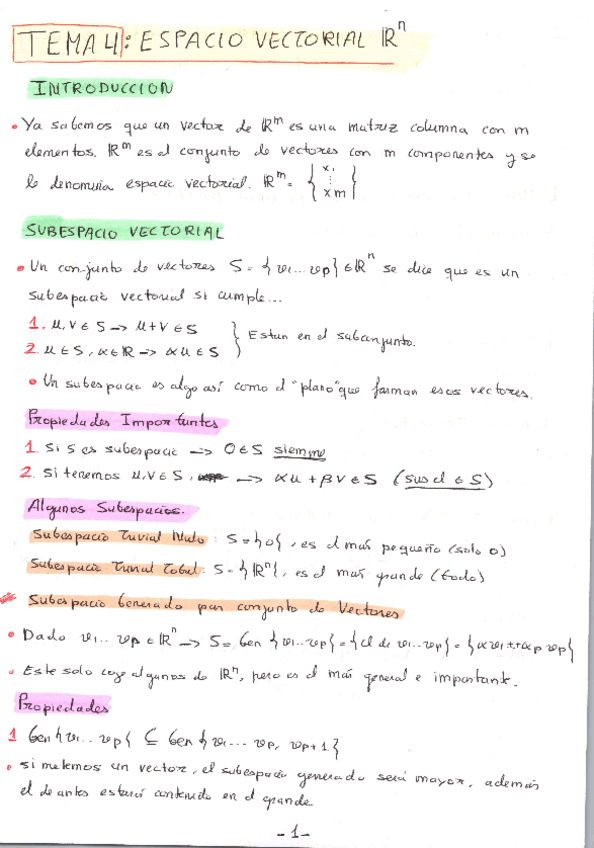 TEMA 4: ESPACIO VECTORIAL ℝⁿ
INTRODUCCION
• Ya sabemos que un vector de ℝᵐ es una matriz columna con m
elementos. ℝᵐ es el conjunto de vectores con m componentes y se
le denomina espacio vectorial. ℝᵐ = { x₁ ⋮ xm }
SUBESPACIO VECTORIAL
• Un conjunto de vectores S = {v₁...vp} ∈ ℝⁿ se dice que es un
subespacio vectorial si cumple...
1. u, v ∈ S → u+v ∈ S
2. u ∈ S, α ∈ ℝ → αu ∈ S
} Estan en el subconjunto.
• Un subespacio es algo así como el "plano" que forman esos vectores.
Propiedades Importantes
1. Si S es subespacio → 0 ∈ S siempre
2. Si tenemos u, v ∈ S, → αu + βv ∈ S (sus cl ∈ S)
Algunos Subespacios.
Subespacio Trivial Nulo: S = {0}, es el más pequeño (solo 0)
Subespacio Trivial Total: S = {ℝⁿ}, es el más grande (todo)
* Subespacio Generado por conjunto de Vectores
• Dado v₁...vp ∈ ℝⁿ → S = Gen {v₁...vp} = {cl de v₁...vp} = {αv₁+...+αp vp}
• Este solo coge algunos de ℝⁿ, pero es el más general e importante.
Propiedades
1 Gen {v₁...vp} ⊆ Gen {v₁...vp, vp+1}
• si metemos un vector, el subespacio generado será mayor, además
el de antes estará contenido en el grande
-1-